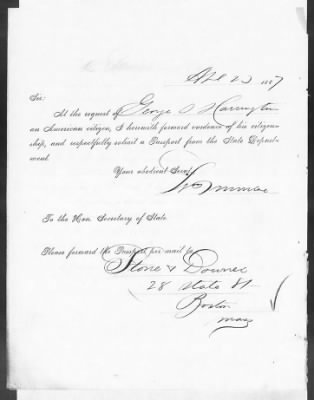 Sir:
At the request of George S Harrington
an American citizen, I herewith forward evidence of his citizen-
ship, and respectfully solicit a Passport from the State Depart-
ment.
Your obedient Serv't
To the Hon. Secretary of State.
Please forward the Passport per mail to
Stone & Downer
28 State St.
Boston
Mass